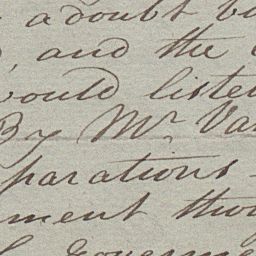 a doubt b
, and the
would liste
By Mr Va
parations
ment tho
Governme